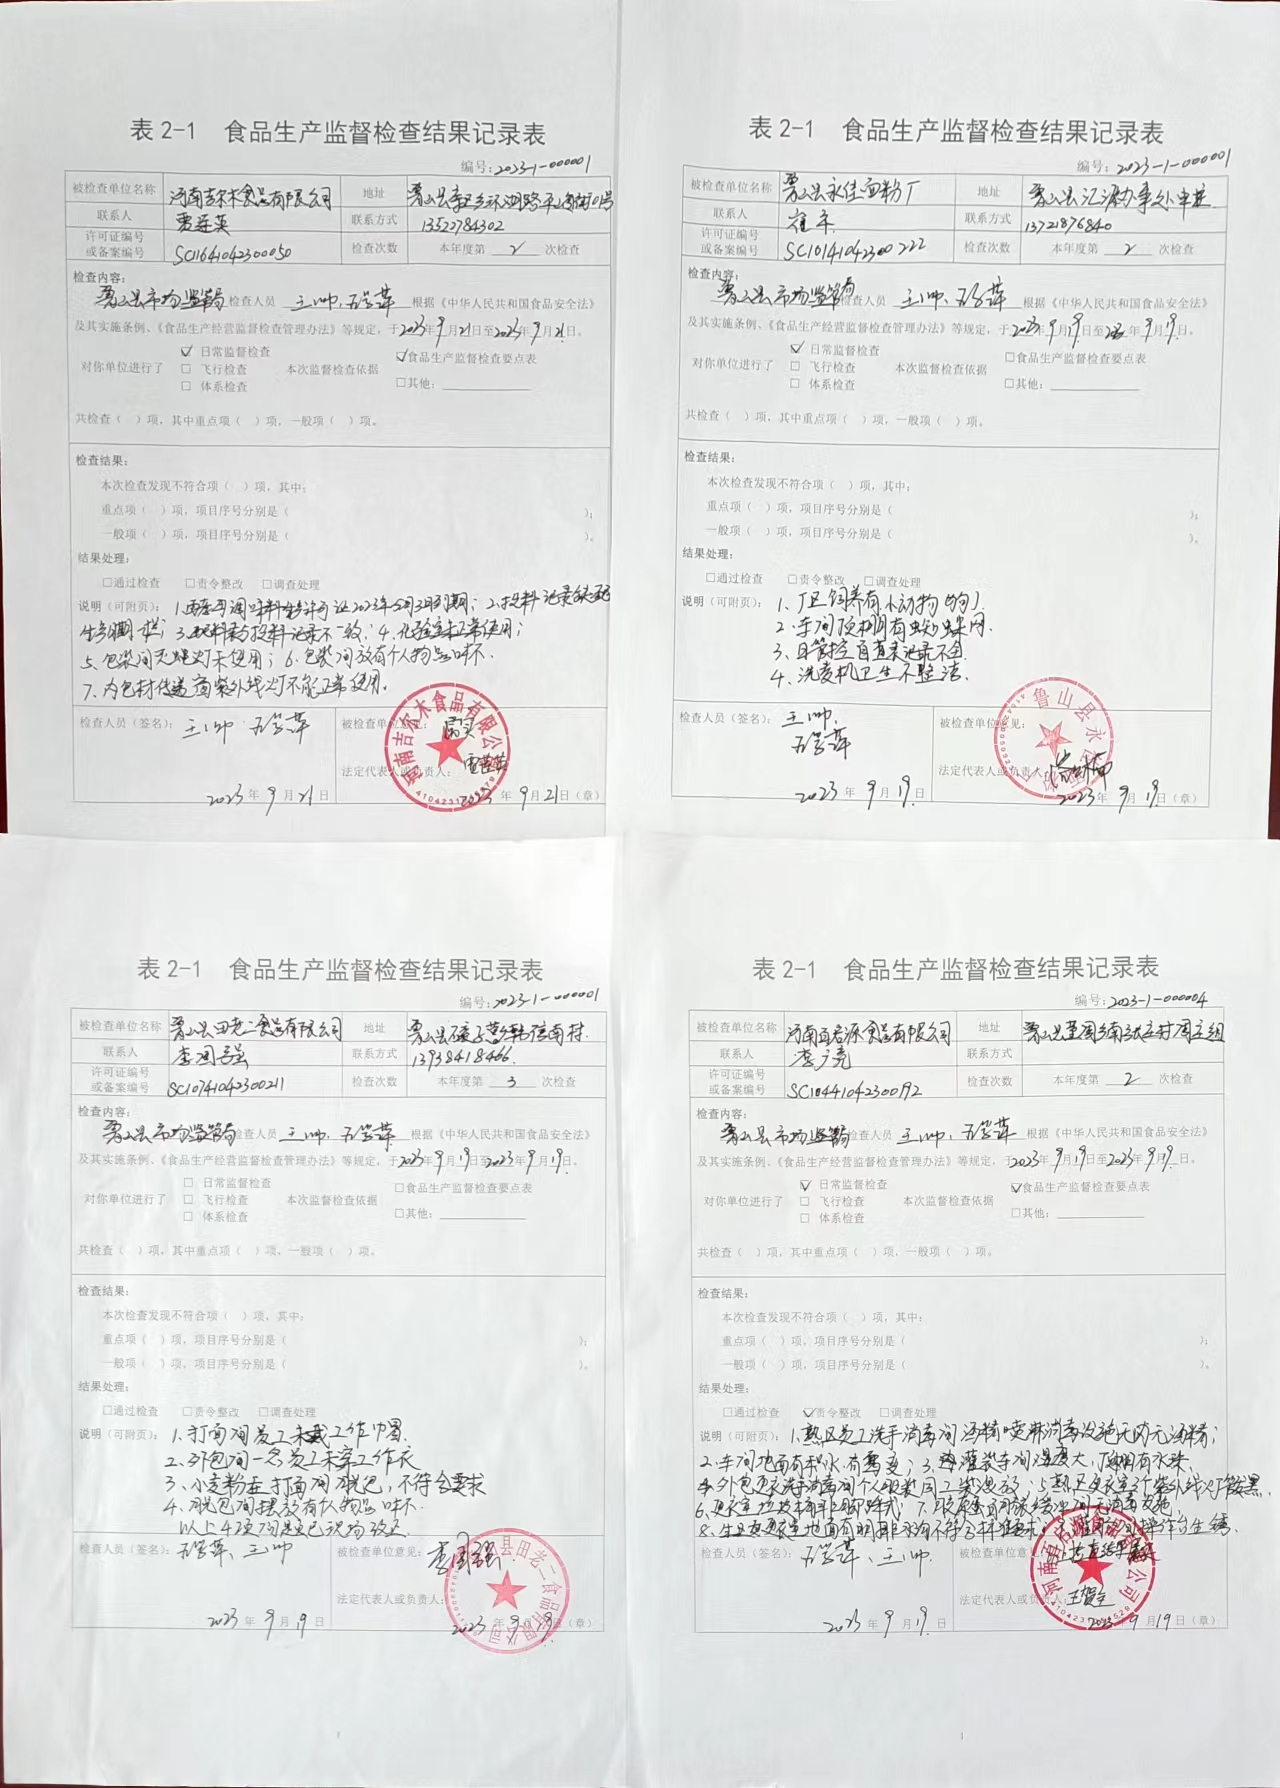 表 2-1 食品生产监督检查结果记录表
编号: 2023-1-000001
被检查单位名称 河南吉尔木食品有限公司 地址
联系人 贾莲英 联系方式 13522784302
许可证编号
或备案编号 SC11641042300050 检查次数 本年度第 2 次检查
检查内容:
鲁山县市场监管局 检查人员 王帅、 根据《中华人民共和国食品安全法》
及其实施条例、《食品生产经营监督检查管理办法》等规定,于2023年9月21日至2023年9月21日。
☑ 日常监督检查
对你单位进行了 □ 飞行检查 本次监督检查依据
□ 体系检查
☑食品生产监督检查要点表
□其他:
共检查( )项,其中重点项( )项,一般项( )项。
检查结果:
本次检查发现不符合项( )项,其中:
重点项( )项,项目序号分别是( );
一般项( )项,项目序号分别是( )。
结果处理:
□通过检查 □责令整改 □调查处理
说明(可附页): 1. 调味料生产许可证2023年5月3日到期; 2.投料记录缺
生产日期栏; 3. 与投料记录不一致; 4.化验室未正常使用;
5.包装间灭蝇灯未使用; 6.包装间放有个人物品
7.内包材传递窗紫外线灯不能正常使用。
检查人员(签名): 王帅 被检查单位意见: 属实
法定代表人或负责人:
2023 年 9 月 21 日 2023 年 9 月 21 日(章)
表 2-1 食品生产监督检查结果记录表
编号: 2023-1-000001
被检查单位名称 鲁山县永佳面粉厂 地址 鲁山县汇源办事处
联系人 联系方式 13721876840
许可证编号
或备案编号 SC10141042300222 检查次数 本年度第 2 次检查
检查内容:
鲁山县市场监管局 检查人员 王帅、 根据《中华人民共和国食品安全法》
及其实施条例、《食品生产经营监督检查管理办法》等规定,于2023年9月19日至2023年9月19日。
☑ 日常监督检查
对你单位进行了 □ 飞行检查 本次监督检查依据
□ 体系检查
□食品生产监督检查要点表
□其他:
共检查( )项,其中重点项( )项,一般项( )项。
检查结果:
本次检查发现不符合项( )项,其中:
重点项( )项,项目序号分别是( );
一般项( )项,项目序号分别是( )。
结果处理:
□通过检查 □责令整改 □调查处理
说明(可附页): 1、厂区饲养有小动物(狗)
2、车间顶棚有蜘蛛网
3、日管控自查表记录不全
4、洗麦机卫生不整洁.
检查人员(签名): 王帅. 被检查单位意见:
法定代表人或负责人:
2023 年 9 月 19 日 2023 年 9 月 19 日(章)
表 2-1 食品生产监督检查结果记录表
编号: 2023-1-000001
被检查单位名称 鲁山县田老二食品有限公司 地址
联系人 李国强 联系方式 13938418466
许可证编号
或备案编号 SC10741042300211 检查次数 本年度第 3 次检查
检查内容:
鲁山县市场监管局 检查人员 王帅、 根据《中华人民共和国食品安全法》
及其实施条例、《食品生产经营监督检查管理办法》等规定,于2023年9月19日至2023年9月19日。
□ 日常监督检查
对你单位进行了 □ 飞行检查 本次监督检查依据
□ 体系检查
□食品生产监督检查要点表
□其他:
共检查( )项,其中重点项( )项,一般项( )项。
检查结果:
本次检查发现不符合项( )项,其中:
重点项( )项,项目序号分别是( );
一般项( )项,项目序号分别是( )。
结果处理:
□通过检查 □责令整改 □调查处理
说明(可附页): 1、打面间员工未戴工作帽.
2、外包间一名员工未穿工作衣
3、小麦粉在打面间脱包,不符合要求
4、脱包间摆放有个人物品
以上4项问题已现场改正.
检查人员(签名): 王帅 被检查单位意见: 李国强
法定代表人或负责人:
2023 年 9 月 19 日 2023 年 9 月 19 日(章)
表 2-1 食品生产监督检查结果记录表
编号: 2023-1-000004
被检查单位名称 河南 君源食品有限公司 地址
联系人 李广亮 联系方式
许可证编号
或备案编号 SC10441042300192 检查次数 本年度第 2 次检查
检查内容:
鲁山县市场监管局 检查人员 王帅、 根据《中华人民共和国食品安全法》
及其实施条例、《食品生产经营监督检查管理办法》等规定,于2023年9月19日至2023年9月19日。
☑ 日常监督检查
对你单位进行了 □ 飞行检查 本次监督检查依据
□ 体系检查
☑食品生产监督检查要点表
□其他:
共检查( )项,其中重点项( )项,一般项( )项。
检查结果:
本次检查发现不符合项( )项,其中:
重点项( )项,项目序号分别是( );
一般项( )项,项目序号分别是( )。
结果处理:
□通过检查 ☑责令整改 □调查处理
说明(可附页): 1.熟区员工洗手消毒间酒精喷淋消毒设施无内无酒精;
2.车间地面有积水 ; 3. 灌装车间湿度大,顶棚有水珠
4.外包更衣洗手消毒间个人服装同工装混放; 5.熟区更衣室3个紫外线灯管黑
检查人员(签名): 王帅. 被检查单位意见:
法定代表人或负责人:
2023 年 9 月 19 日 2023 年 9 月 19 日(章)